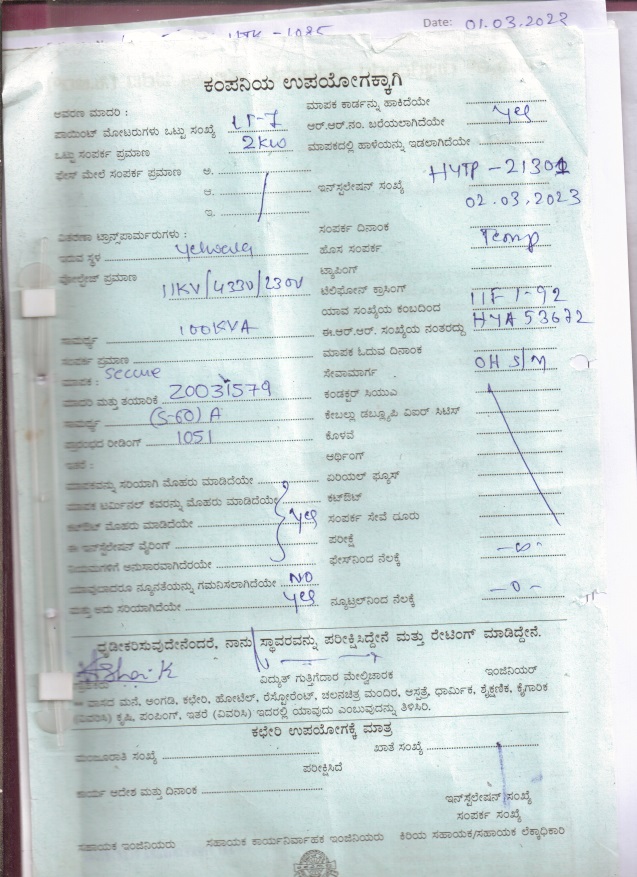 Date: 01.03.2023
HTK-1085
ಕಂಪನಿಯ ಉಪಯೋಗಕ್ಕಾಗಿ
ಆವರಣ ಮಾದರಿ :
ಪಾಯಿಂಟ್ ಮೋಟರುಗಳು ಒಟ್ಟು ಸಂಖ್ಯೆ LT-7
ಒಟ್ಟು ಸಂಪರ್ಕ ಪ್ರಮಾಣ 2KW
ಫೇಸ್ ಮೇಲೆ ಸಂಪರ್ಕ ಪ್ರಮಾಣ ಅ.
ಆ.
ಇ.
ವಿತರಣಾ ಟ್ರಾನ್ಸ್‌ಪಾರ್ಮರುಗಳು :
ಇರುವ ಸ್ಥಳ Yelwala
ವೋಲ್ಟೇಜ್ ಪ್ರಮಾಣ 11KV/433V/230V
ಸಾಮರ್ಥ್ಯ 100KVA
ಸಂಪರ್ಕ ಪ್ರಮಾಣ
ಮಾಪಕ : Secure
ಮಾದರಿ ಮತ್ತು ತಯಾರಿಕೆ 20031579
ಸಾಮರ್ಥ್ಯ (5-60) A
ಪ್ರಾರಂಭದ ರೀಡಿಂಗ್ 1051
ಇತರೆ :
ಮಾಪಕವನ್ನು ಸರಿಯಾಗಿ ಮೊಹರು ಮಾಡಿದೆಯೇ
ಮಾಪಕ ಟರ್ಮಿನಲ್ ಕವರನ್ನು ಮೊಹರು ಮಾಡಿದೆಯೇ
ಕಟ್‌ಔಟ್ ಮೊಹರು ಮಾಡಿದೆಯೇ Yes
ಈ ಇನ್‌ಸ್ಟಲೇಷನ್ ವೈರಿಂಗ್
ನಿಯಮಗಳಿಗೆ ಅನುಸಾರವಾಗಿದೆರಯೇ
ಯಾವುದಾದರೂ ನ್ಯೂನತೆಯನ್ನು ಗಮನಿಸಲಾಗಿದೆಯೇ NO
ಮತ್ತು ಅದು ಸರಿಯಾಗಿದೆಯೇ Yes
ಮಾಪಕ ಕಾರ್ಡನ್ನು ಹಾಕಿದೆಯೇ
ಆರ್.ಆರ್.ನಂ. ಬರೆಯಲಾಗಿದೆಯೇ Yes
ಮಾಪಕದಲ್ಲಿ ಹಾಳೆಯನ್ನು ಇಡಲಾಗಿದೆಯೇ
ಇನ್‌ಸ್ಟಲೇಷನ್ ಸಂಖ್ಯೆ HYTP-21301
02.03.2023
ಸಂಪರ್ಕ ದಿನಾಂಕ
ಹೊಸ ಸಂಪರ್ಕ Temp
ಟ್ಯಾಪಿಂಗ್
ಟೆಲಿಫೋನ್ ಕ್ರಾಸಿಂಗ್
ಯಾವ ಸಂಖ್ಯೆಯ ಕಂಬದಿಂದ IIF 1-92
ಈ.ಆರ್.ಆರ್. ಸಂಖ್ಯೆಯ ನಂತರದ್ದು HYA 53672
ಮಾಪಕ ಓದುವ ದಿನಾಂಕ
ಸೇವಾಮಾರ್ಗ OH S/M
ಕಂಡಕ್ಟರ್ ಸಿಯುಎ
ಕೇಬಲ್ಲು ಡಬ್ಲ್ಯೂಪಿ ವಿಐಆರ್ ಸಿಟಿಸ್
ಕೊಳವೆ
ಆರ್ಥಿಂಗ್
ಏರಿಯಲ್ ಫ್ಯೂಸ್
ಕಟ್‌ಔಟ್
ಸಂಪರ್ಕ ಸೇವೆ ದೂರು
ಪರೀಕ್ಷೆ
ಫೇಸ್‌ನಿಂದ ನೆಲಕ್ಕೆ -∞-
ನ್ಯೂಟ್ರಲ್‌ನಿಂದ ನೆಲಕ್ಕೆ -0-
ದೃಡೀಕರಿಸುವುದೇನೆಂದರೆ, ನಾನು ಸ್ಥಾವರವನ್ನು ಪರೀಕ್ಷಿಸಿದ್ದೇನೆ ಮತ್ತು ರೇಟಿಂಗ್ ಮಾಡಿದ್ದೇನೆ.
ವಿದ್ಯುತ್ ಗುತ್ತಿಗೆದಾರ ಮೇಲ್ವಿಚಾರಕ ಇಂಜಿನಿಯರ್
ವಾಸದ ಮನೆ, ಅಂಗಡಿ, ಕಛೇರಿ, ಹೋಟೆಲ್, ರೆಸ್ಟೋರೆಂಟ್, ಚಲನಚಿತ್ರ ಮಂದಿರ, ಆಸ್ಪತ್ರೆ, ಧಾರ್ಮಿಕ, ಶೈಕ್ಷಣಿಕ, ಕೈಗಾರಿಕ
(ವಿವರಿಸಿ) ಕೃಷಿ, ಪಂಪಿಂಗ್, ಇತರೆ (ವಿವರಿಸಿ) ಇದರಲ್ಲಿ ಯಾವುದು ಎಂಬುವುದನ್ನು ತಿಳಿಸಿರಿ.
ಕಛೇರಿ ಉಪಯೋಗಕ್ಕೆ ಮಾತ್ರ
ಮಂಜೂರಾತಿ ಸಂಖ್ಯೆ ಖಾತೆ ಸಂಖ್ಯೆ
ಪರೀಕ್ಷಿಸಿದೆ
ಕಾರ್ಯ ಆದೇಶ ಮತ್ತು ದಿನಾಂಕ
ಇನ್‌ಸ್ಟಲೇಷನ್ ಸಂಖ್ಯೆ
ಸಂಪರ್ಕ ಸಂಖ್ಯೆ
ಸಹಾಯಕ ಇಂಜಿನಿಯರು ಸಹಾಯಕ ಕಾರ್ಯನಿರ್ವಾಹಕ ಇಂಜಿನಿಯರು ಕಿರಿಯ ಸಹಾಯಕ/ಸಹಾಯಕ ಲೆಕ್ಕಾಧಿಕಾರಿ